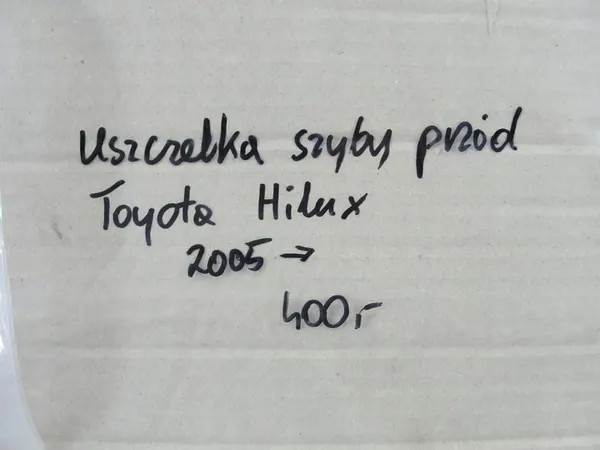 Uszczelka szyby przód
Toyota Hilux
2005 →
400,-